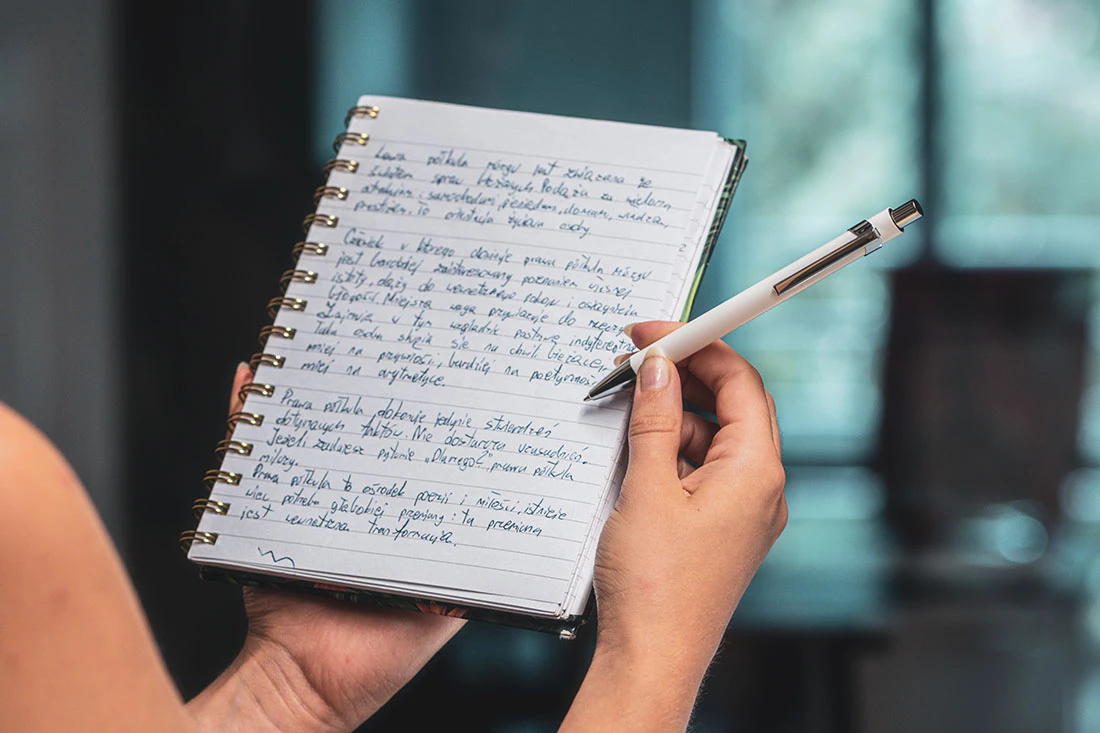 Lewa półkula mózgu jest związana ze
światem spraw bieżących. Podąża za wielkimi
atrakcjami: samochodami, pieniędzmi, domami, władzą,
prestiżem, to orkiestra życiowa osoby.
Człowiek w którego dominuje prawa półkula mózgu
jest bardziej zainteresowany poznaniem własnej
istoty, dąży do wewnętrznego pokoju i osiągnięcia
błogości. Miejsza waga przywiązuje do rzeczy
Zajmuje w tym względzie postawę indyferentną
Taka osoba skupia się na chwili bieżącej,
mniej na przyszłości, bardziej na poetyczności
mniej na arytmetyce.
Prawa półkula dokonuje jedynie stwierdzeń
dotyczących faktów. Nie dostarcza uzasadnień.
Jeżeli zadajesz pytanie „Dlaczego?” prawa półkula
milczy.
Prawa półkula to ośrodek poezji i miłości, istnieje
więc potrzeba głębokiej przemiany: tą przemianą
jest wewnętrzna transformacja.